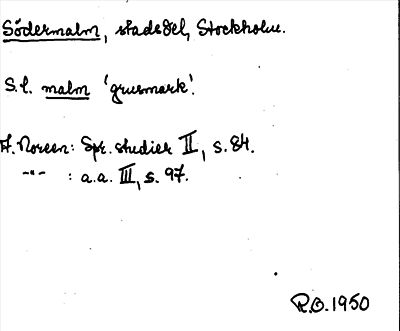 Södermalm, stadsdel, Stockholm.
S.l. malm 'grusmark'.
A. Noreen: Spr. studier II, s. 84.
-"- : a.a. III, s. 97.
P.O. 1950